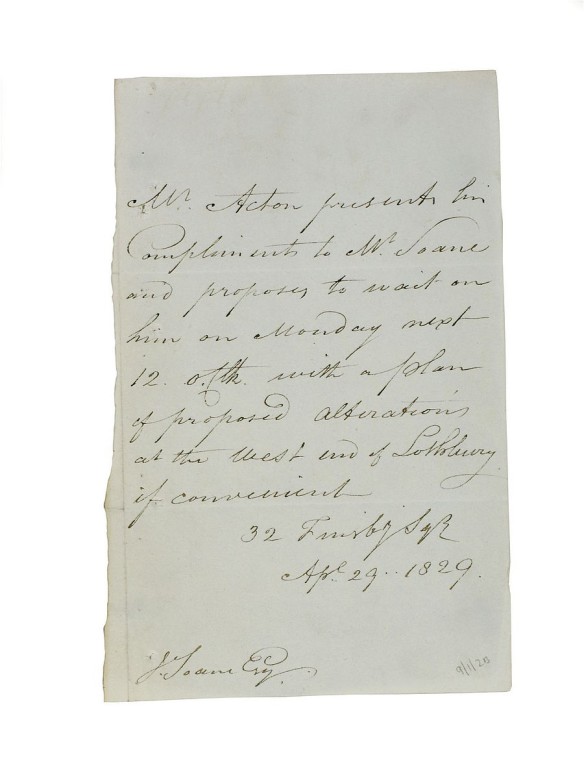 Mr. Acton presents his
Compliments to Mr. Soane
and proposes to wait on
him on Monday next
12. o.Clk. with a plan
of proposed alterations
at the West end of Lothbury
if convenient
32 Finsby Sqr
Apl. 29. 1829.
J. Soane Esqr.
9/1/20